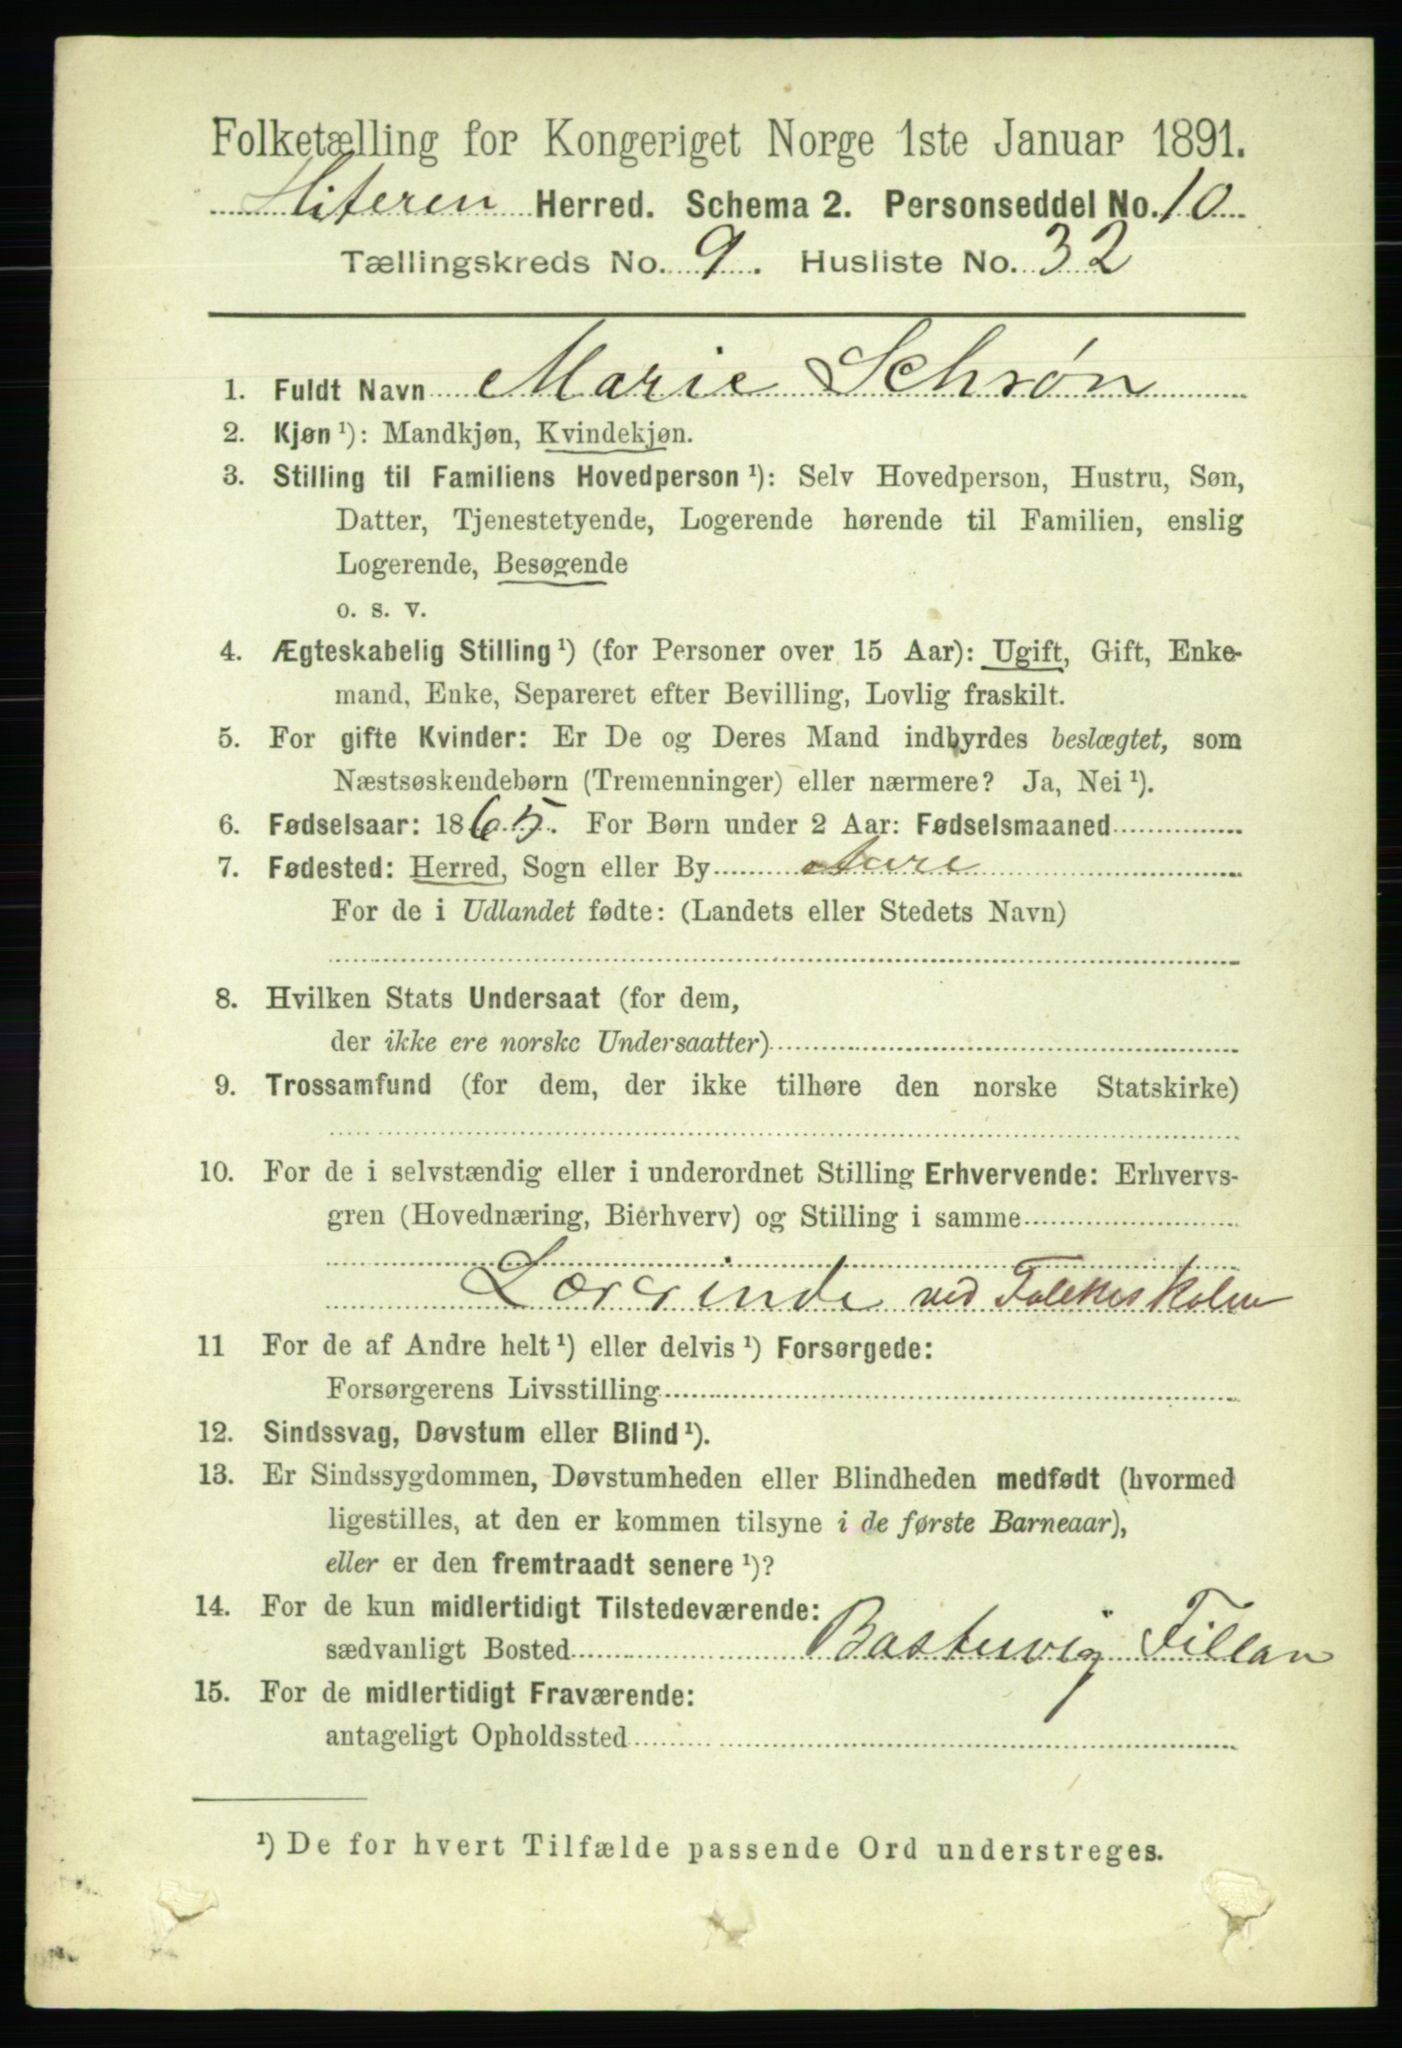 Folketælling for Kongeriget Norge 1ste Januar 1891.
Hiteren Herred. Schema 2. Personseddel No. 10
Tællingskreds No. 9. Husliste No. 32
1. Fuldt Navn Marie Schrøn
2. Kjøn ¹): Mandkjøn, Kvindekjøn.
3. Stilling til Familiens Hovedperson ¹): Selv Hovedperson, Hustru, Søn,
Datter, Tjenestetyende, Logerende hørende til Familien, enslig
Logerende, Besøgende
o. s. v.
4. Ægteskabelig Stilling ¹) (for Personer over 15 Aar): Ugift, Gift, Enke-
mand, Enke, Separeret efter Bevilling, Lovlig fraskilt.
5. For gifte Kvinder: Er De og Deres Mand indbyrdes beslægtet, som
Næstsøskendebørn (Tremenninger) eller nærmere? Ja, Nei ¹).
6. Fødselsaar: 1865. For Børn under 2 Aar: Fødselsmaaned
7. Fødested: Herred, Sogn eller By Aure
For de i Udlandet fødte: (Landets eller Stedets Navn)
8. Hvilken Stats Undersaat (for dem,
der ikke ere norske Undersaatter)
9. Trossamfund (for dem, der ikke tilhøre den norske Statskirke)
10. For de i selvstændig eller i underordnet Stilling Erhvervende: Erhvervs-
gren (Hovednæring, Bierhverv) og Stilling i samme
Lærerinde ved Folkeskolen
11 For de af Andre helt ¹) eller delvis ¹) Forsørgede:
Forsørgerens Livsstilling
12. Sindssvag, Døvstum eller Blind ¹).
13. Er Sindssygdommen, Døvstumheden eller Blindheden medfødt (hvormed
ligestilles, at den er kommen tilsyne i de første Barneaar),
eller er den fremtraadt senere ¹)?
14. For de kun midlertidigt Tilstedeværende:
sædvanligt Bosted Bastuvig Fillan
15. For de midlertidigt Fraværende:
antageligt Opholdssted
¹) De for hvert Tilfælde passende Ord understreges.